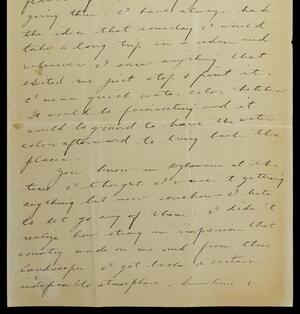 places
going thru. I have always had
the idea that someday I would
take a long trip in a sedan and
whenever I saw anything that
excited me just stop & paint it.
I mean quick water color sketches
It would be fascinating and it
would be grand to have the water
colors afterward to bring back the
places.
You know in at the
time I thought I wasn't getting
anything but now somehow I hate
to let go any of them. I didn't
realize how strong an impression that
country made on me and from those
landscapes I got back a certain
indefinable atmosphere. Sunshine &